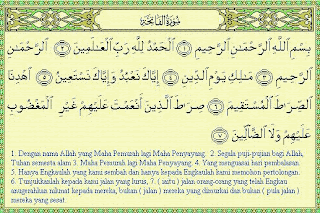 سُورَةُ الفَاتِحَةِ
بِسْمِ اللَّهِ الرَّحْمَٰنِ الرَّحِيمِ ﴿١﴾ الْحَمْدُ لِلَّهِ رَبِّ الْعَالَمِينَ ﴿٢﴾ الرَّحْمَٰنِ
الرَّحِيمِ ﴿٣﴾ مَالِكِ يَوْمِ الدِّينِ ﴿٤﴾ إِيَّاكَ نَعْبُدُ وَإِيَّاكَ نَسْتَعِينُ ﴿٥﴾ اهْدِنَا
الصِّرَاطَ الْمُسْتَقِيمَ ﴿٦﴾ صِرَاطَ الَّذِينَ أَنْعَمْتَ عَلَيْهِمْ غَيْرِ الْمَغْضُوبِ
عَلَيْهِمْ وَلَا الضَّالِّينَ ﴿٧﴾
1. Dengan nama Allah yang Maha Pemurah lagi Maha Penyayang. 2. Segala puji-pujian bagi Allah,
Tuhan semesta alam 3. Maha Pemurah lagi Maha Penyayang. 4. Yang menguasai hari pembalasan.
5. Hanya Engkaulah yang kami sembah dan hanya kepada Engkaulah kami memohon pertolongan.
6. Tunjukkanlah kepada kami jalan yang lurus, 7. ( iaitu ) jalan orang-orang yang telah Engkau
anugerahkan nikmat kepada mereka, bukan ( jalan ) mereka yang dimurkai dan bukan ( pula jalan )
mereka yang sesat.